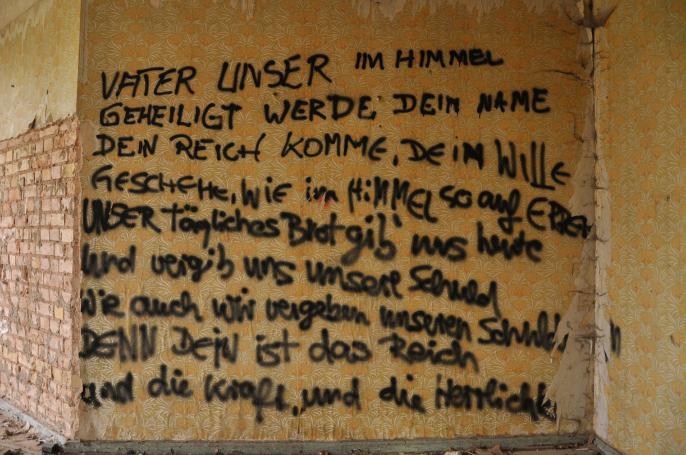 VATER UNSER IM HIMMEL
GEHEILIGT WERDE DEIN NAME
DEIN REICH KOMME, DEIN WILLE
GESCHEHE, WIE im HiMMEL so auf ERDEN
UNSER tägliches Brot gib uns heute
und vergib uns unsere Schuld
Wie auch wir vergeben unseren
DENN DEIN ist das Reich
und die Kraft, und die